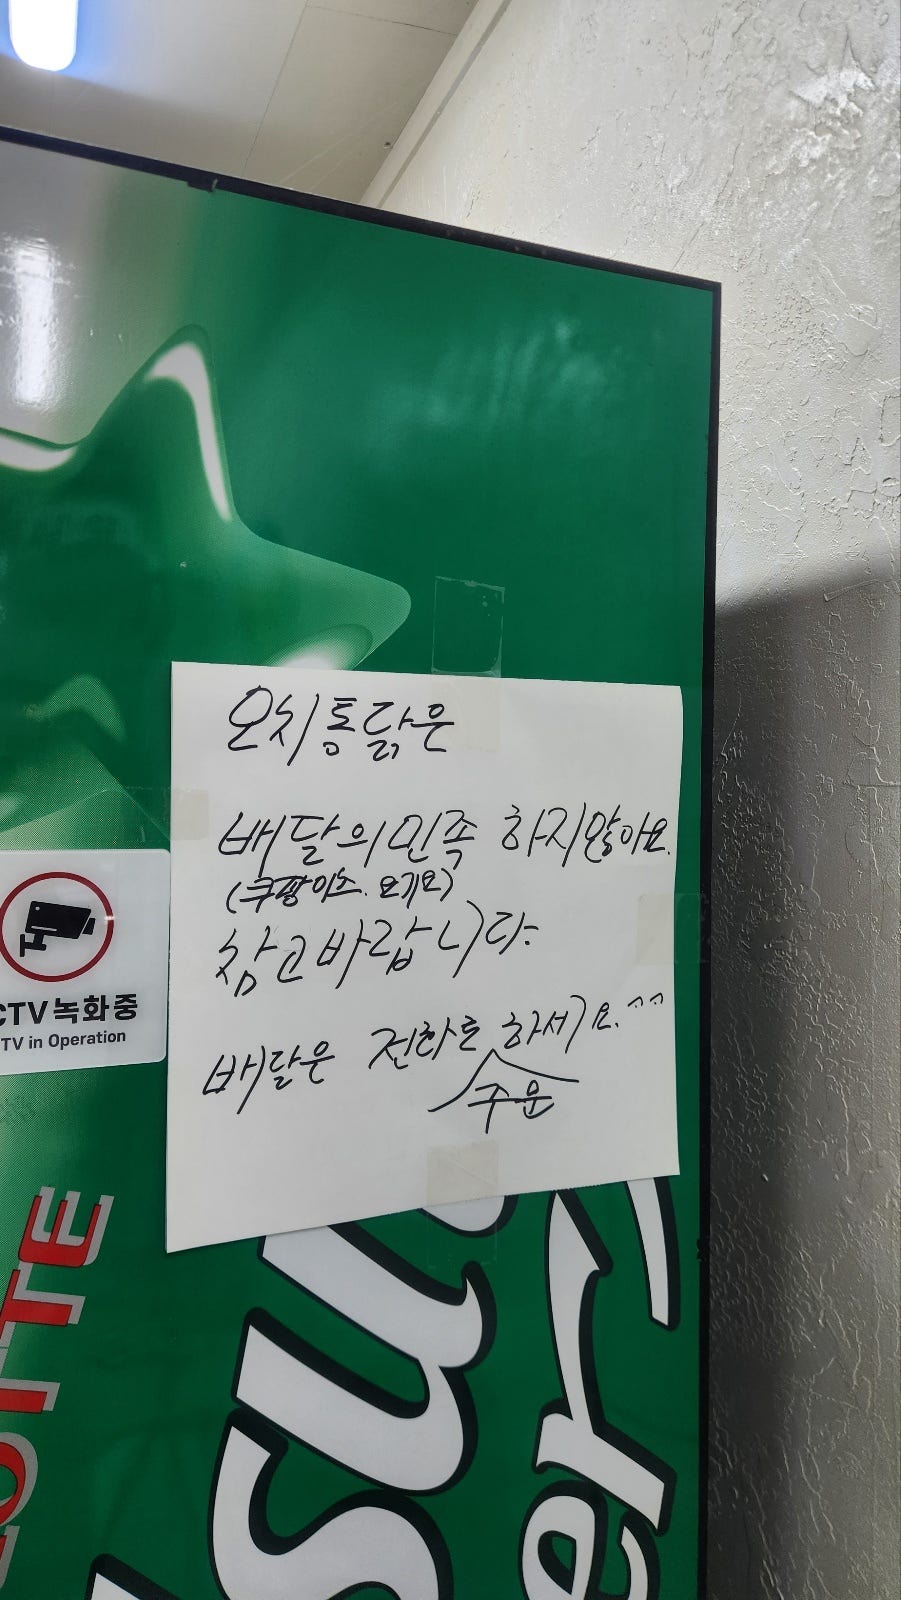 오치통닭은
배달의민족 하지않아요.
(쿠팡이츠. 요기요)
참고바랍니다.
배달은 전화로 하세요.^^
주문
CTV녹화중
TV in Operation
LOTTE